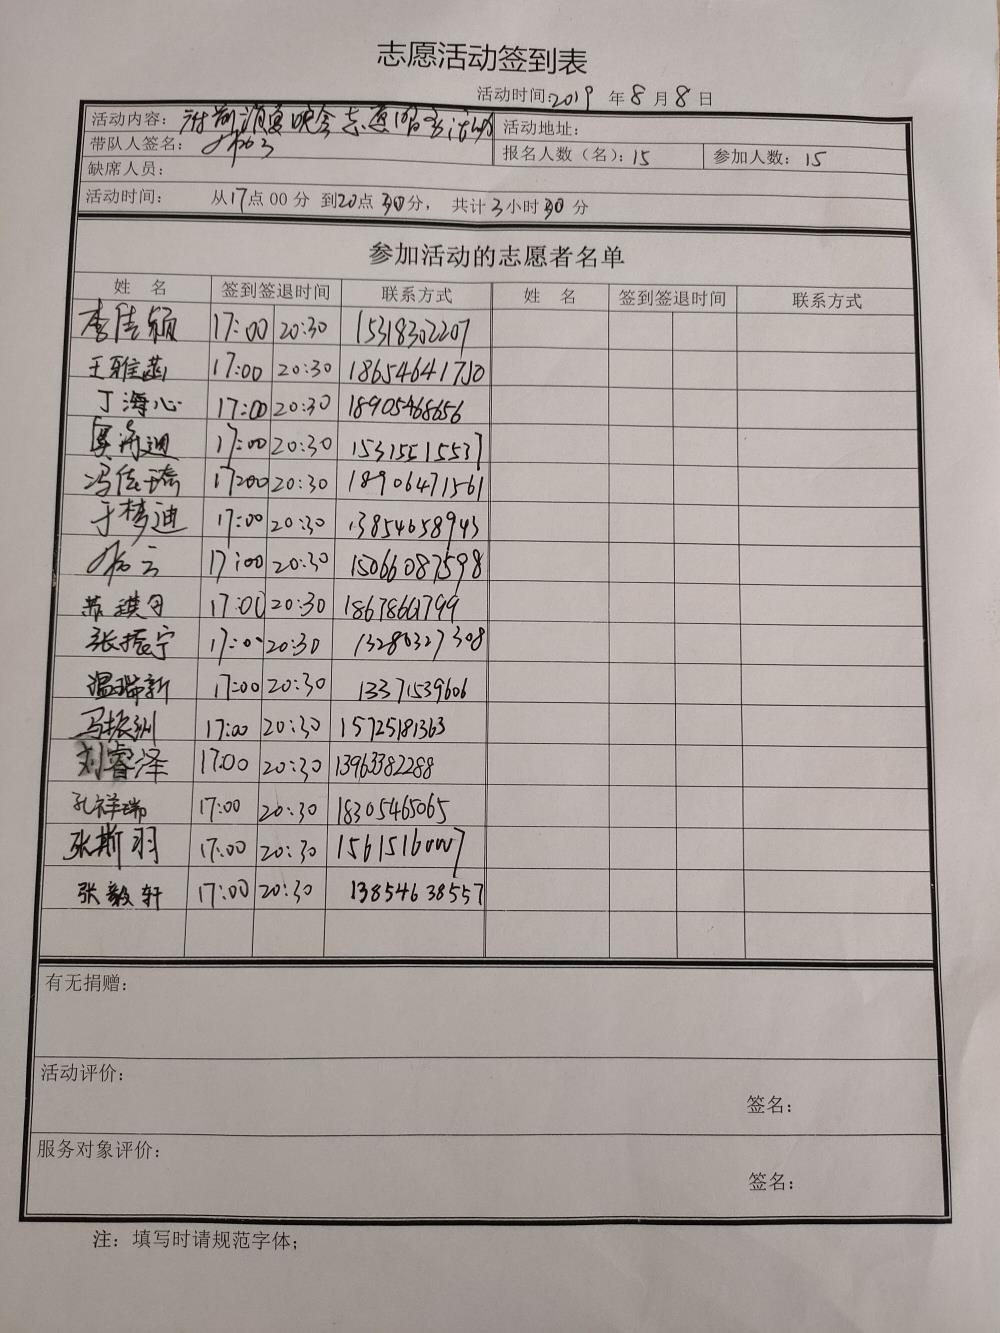 志愿活动签到表
活动时间:2019 年 8 月 8 日
活动内容: 消夏晚会志愿 活动 活动地址:
带队人签名: 报名人数(名): 15 参加人数: 15
缺席人员:
活动时间: 从17点 00 分 到20点 30分, 共计 3小时 30 分
参加活动的志愿者名单
姓 名 签到签退时间 联系方式 姓 名 签到签退时间 联系方式
李佳颖 17:00 20:30 15318302207
王雅菡 17:00 20:30 18654641750
丁海心 17:00 20:30 18905468656
17:00 20:30 15315515537
冯佳琦 17:00 20:30 18906471561
于梦迪 17:00 20:30 13854658943
17:00 20:30 15066087598
苏琪 17:00 20:30
张振宁 17:00 20:30 13280327308
温瑞新 17:00 20:30 13371539606
马振洲 17:00 20:30 15725181363
刘睿泽 17:00 20:30 13963382288
孔祥瑞 17:00 20:30 18305465065
张斯羽 17:00 20:30 15615160007
张毅轩 17:00 20:30 13854638557
有无捐赠:
活动评价:
签名:
服务对象评价:
签名:
注: 填写时请规范字体;